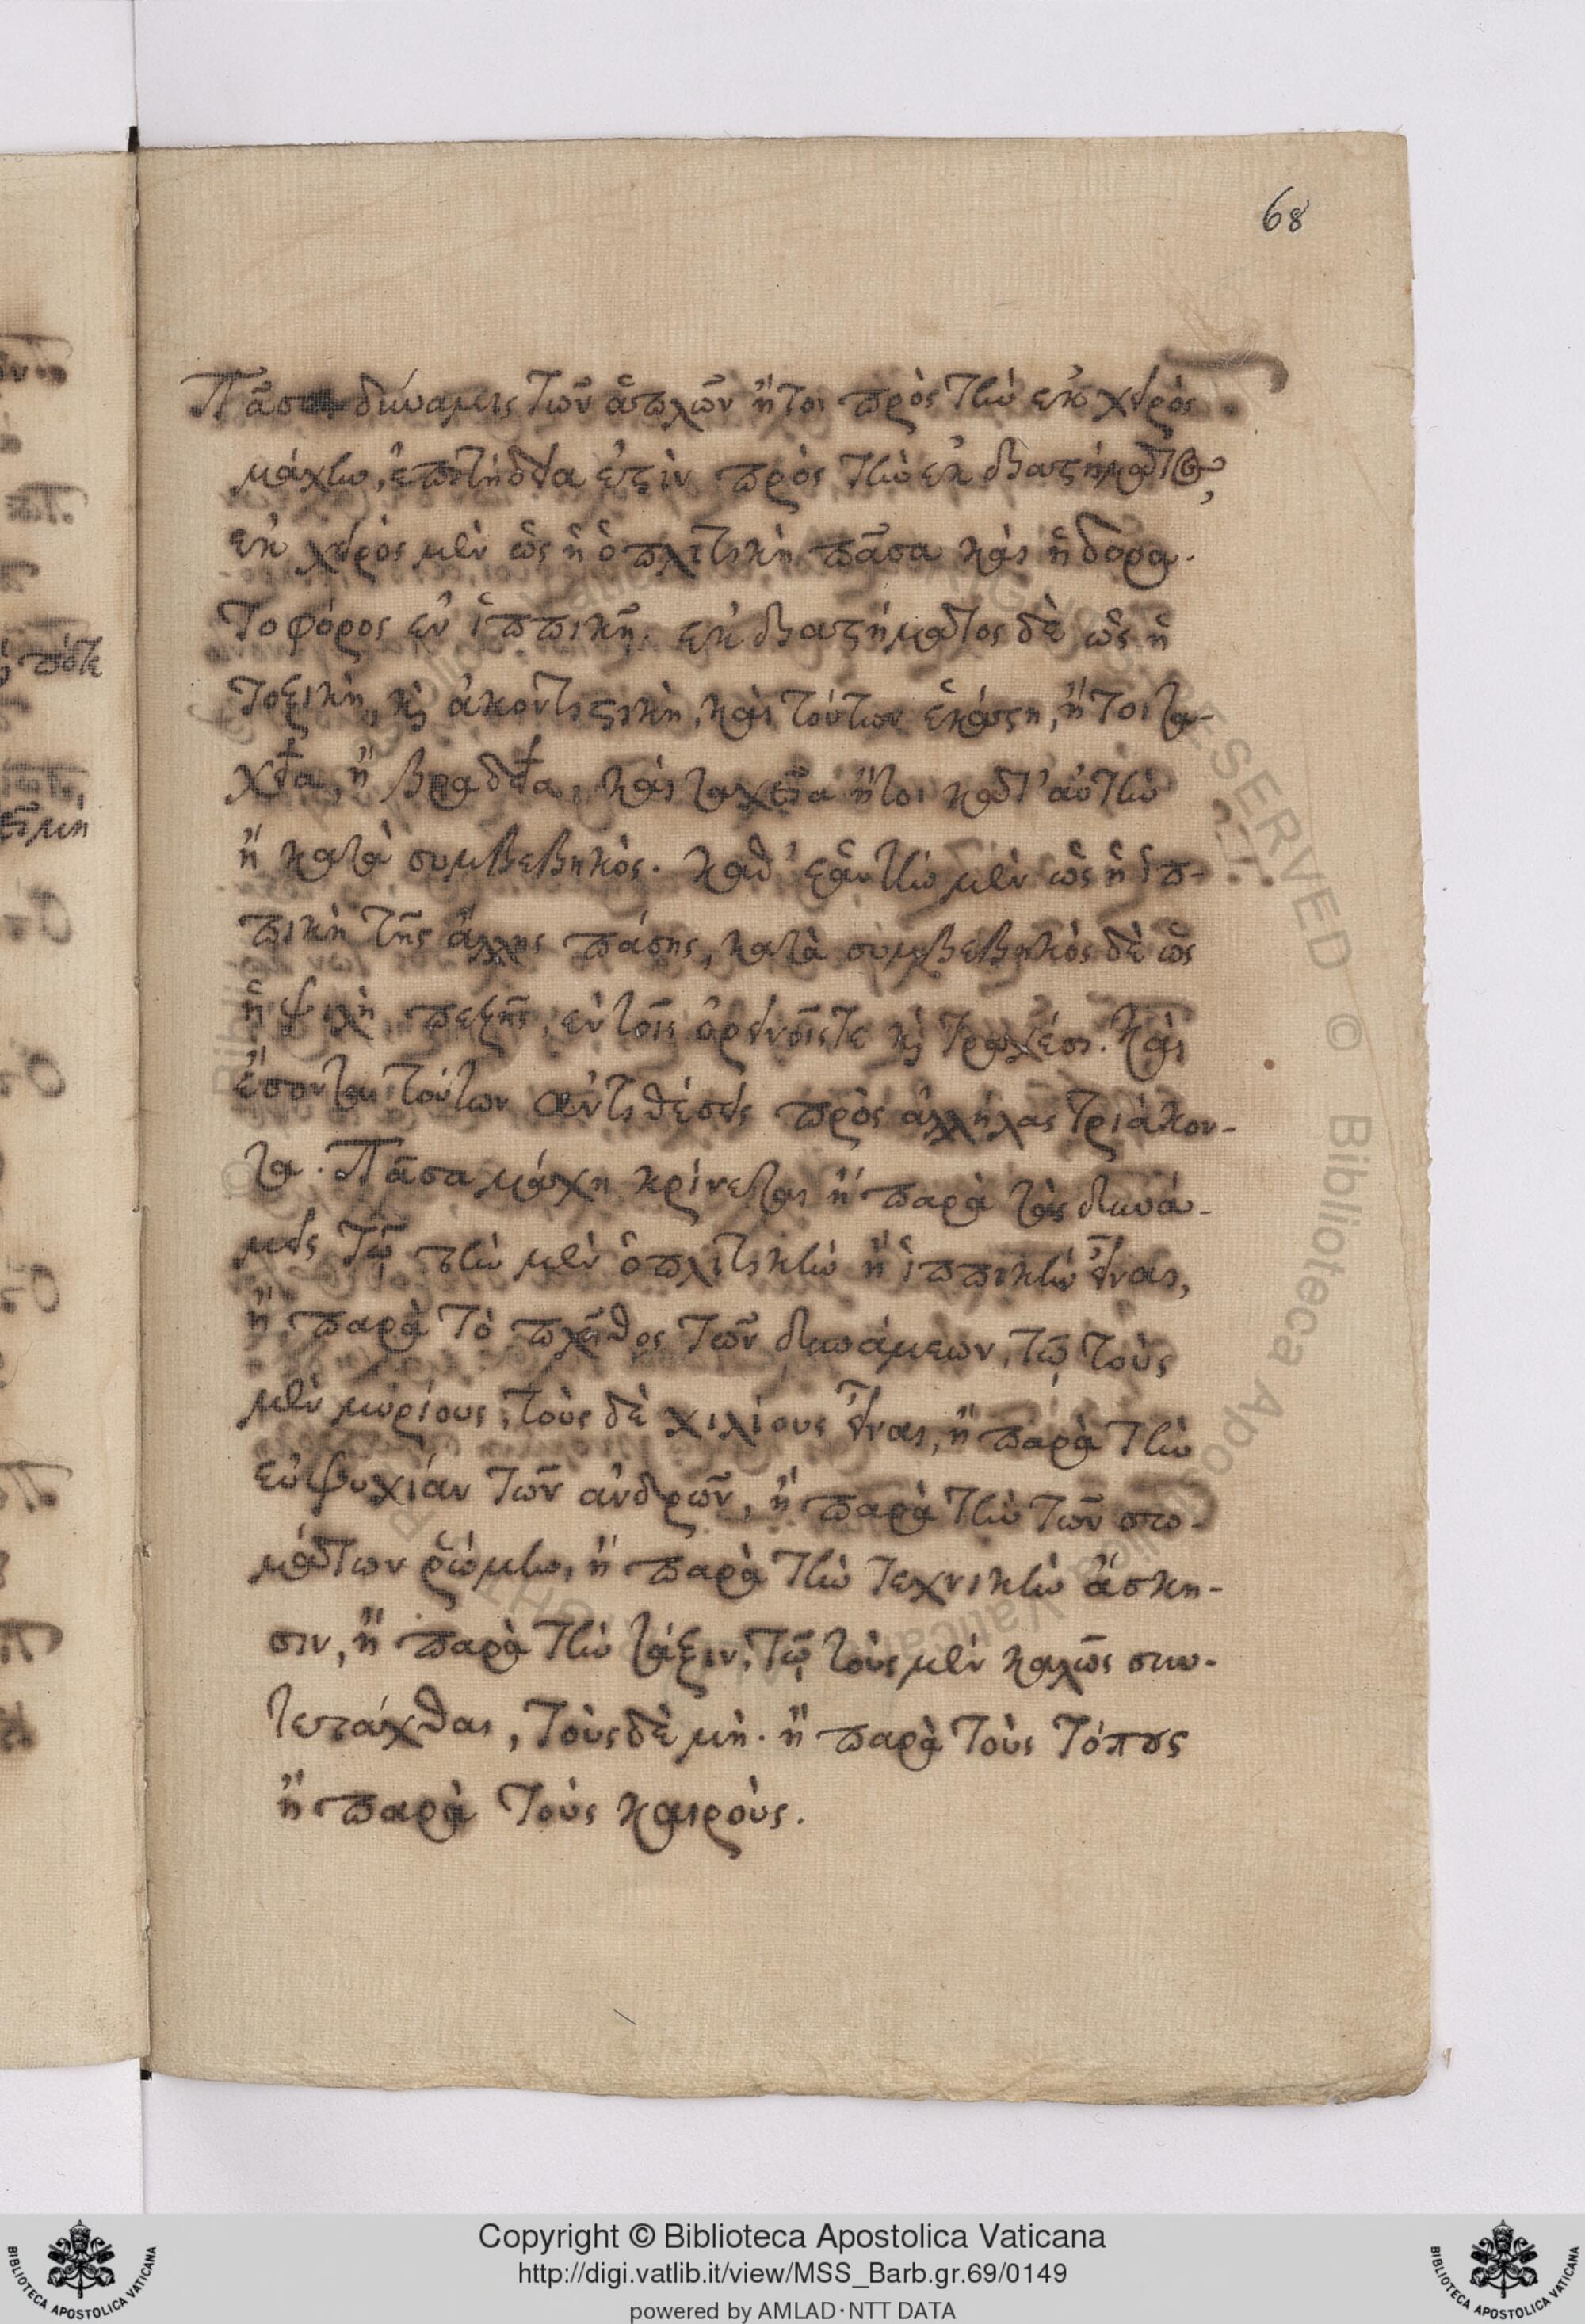 68
Πᾶσαι δύναμεις τῶν ἁπλῶν ἤτοι πρὸς τὴν ἐκ χειρὸς
μάχην, ἐπιτήδεια ἐστὶν πρὸς τὴν ἐκ διαστήματος,
ἐκ χειρὸς μὲν ὡς ἡ ὁπλιτικὴ πᾶσα καὶ ἡ δορα-
τοφόρος ἐν ἱππικῇ. ἐκ διαστήματος δὲ ὡς ἡ
τοξικὴ, κὶ ἀκοντιστικὴ, καὶ τούτων ἑκάστη, ἤτοι τα-
χεῖα, ἢ βραδεῖα, καὶ ταχεῖα ἤτοι κατ' αὐτὴν
ἢ κατὰ συμβεβηκὸς. καθ' ἑαυτὴν μὲν ὡς ἡ ἱπ-
πικὴ τῆς ἄλλης πάσης, κατὰ συμβεβηκὸς δὲ ὡς
ἡ ψιλὴ πεζῆς, ἐν τοῖς ὀρεινοῖς τε κὶ τραχέσι. καὶ
ἔσονται τούτων ἀντιθέσεις πρὸς ἀλλήλας τριάκον-
τα. Πᾶσα μάχη κρίνεται ἢ παρὰ τὰς δυνά-
μεις τῷ τὴν μὲν ὁπλιτικὴν ἢ ἱππικὴν εἶναι,
ἢ παρὰ τὸ πλῆθος τῶν δυνάμεων, τῷ τοὺς
μὲν μυρίους, τοὺς δὲ χιλίους εἶναι, ἢ παρὰ τὴν
εὐψυχίαν τῶν ἀνδρῶν, ἢ παρὰ τὴν τῶν σω-
μάτων ῥώμην, ἢ παρὰ τὴν τεχνικὴν ἄσκη-
σιν, ἢ παρὰ τὴν τάξιν, τῷ τοὺς μὲν καλῶς συν-
τετάχθαι, τοὺς δὲ μὴ. ἢ παρὰ τοὺς τόπους
ἢ παρὰ τοὺς καιροὺς.
Copyright © Biblioteca Apostolica Vaticana
http://digi.vatlib.it/view/MSS_Barb.gr.69/0149
powered by AMLAD·NTT DATA
BIBLIOTECA APOSTOLICA VATICANA
BIBLIOTECA APOSTOLICA VATICANA